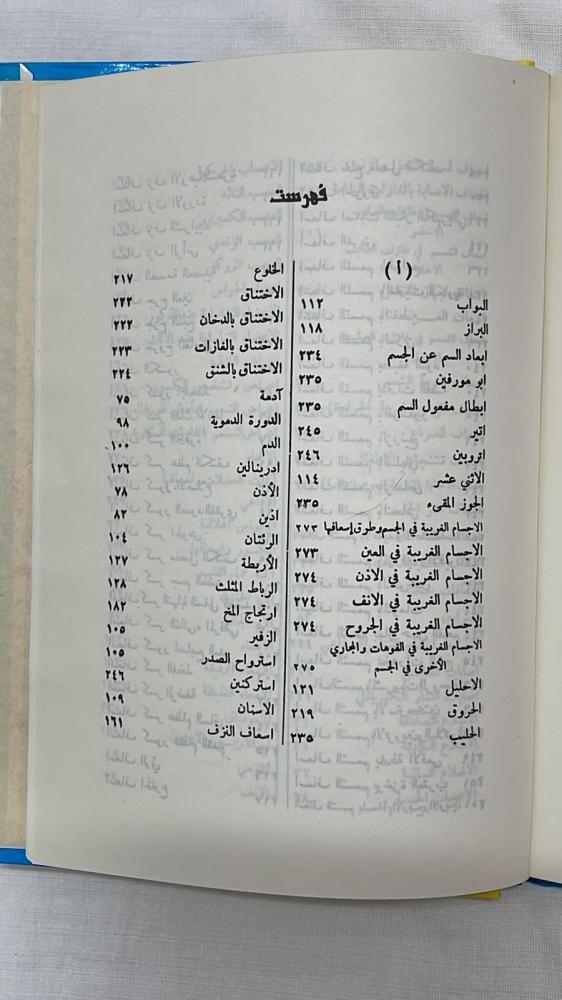 فهرست
( أ )
البواب ١١٢
البراز ١١٨
ابعاد السم عن الجسم ٢٣٤
ابو مورفين ٢٣٥
إبطال مفعول السم ٢٣٥
اتير ٢٤٥
اتروبين ٢٤٦
الاثني عشر ١١٤
الجوز المقيء ٢٣٥
الاجسام الغريبة في الجسم وطرق إسعافها ٢٧٣
الاجسام الغريبة في العين ٢٧٣
الاجسام الغريبة في الاذن ٢٧٤
الاجسام الغريبة في الانف ٢٧٤
الاجسام الغريبة في الجروح ٢٧٤
الاجسام الغريبة في الفوهات والمجاري
الأخرى في الجسم ٢٧٥
الاحليل ١٢١
الحروق ٢١٩
الحليب ٢٣٥
الخلوع ٢١٧
الاختناق ٢٢٢
الاختناق بالدخان ٢٢٢
الاختناق بالغازات ٢٢٣
الاختناق بالشنق ٢٢٤
آدمة ٧٥
الدورة الدموية ٩٨
الدم ١٠٠
ادرينالين ١٢٦
الأذن ٧٨
اذين ٨٢
الرئتان ١٠٤
الأربطة ١٢٧
الرباط المثلث ١٢٨
ارتجاج المخ ١٨٢
الزفير ١٠٥
استرواح الصدر ١٠٥
استركنين ٢٤٦
الاسنان ١٠٩
اسعاف النزف ١٦١